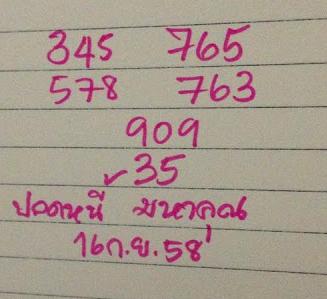 345 765
578 763
909
✓35
ปลดหนี้ มหาคุณ
16ก.ย.58